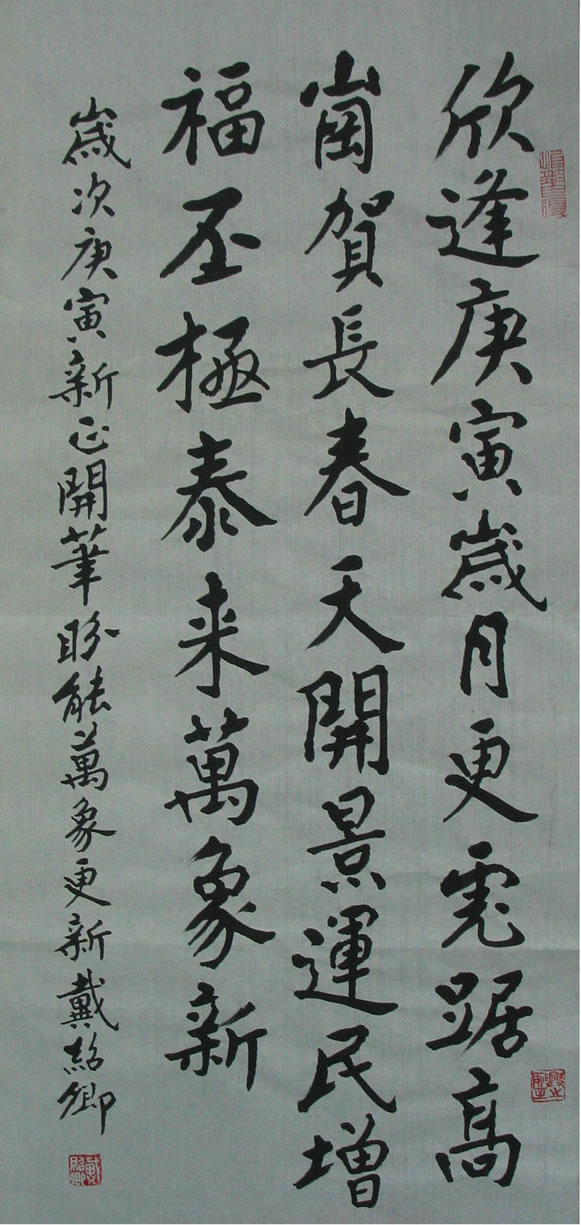 欣逢庚寅歲月更虎踞高
崗賀長春天開景運民增
福丕極泰来萬象新
歲次庚寅新正開筆盼能萬象更新戴紹卿